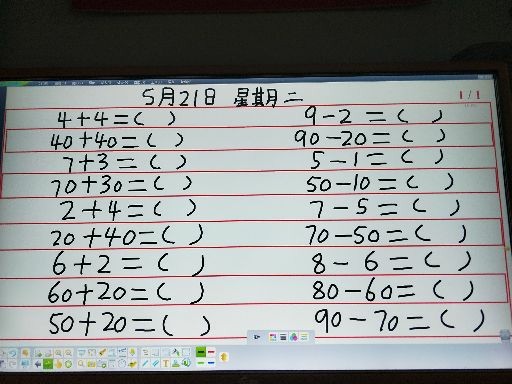 5月21日 星期二
1/1
4+4=( ) 9-2=( )
40+40=( ) 90-20=( )
7+3=( ) 5-1=( )
70+30=( ) 50-10=( )
2+4=( ) 7-5=( )
20+40=( ) 70-50=( )
6+2=( ) 8-6=( )
60+20=( ) 80-60=( )
50+20=( ) 90-70=( )